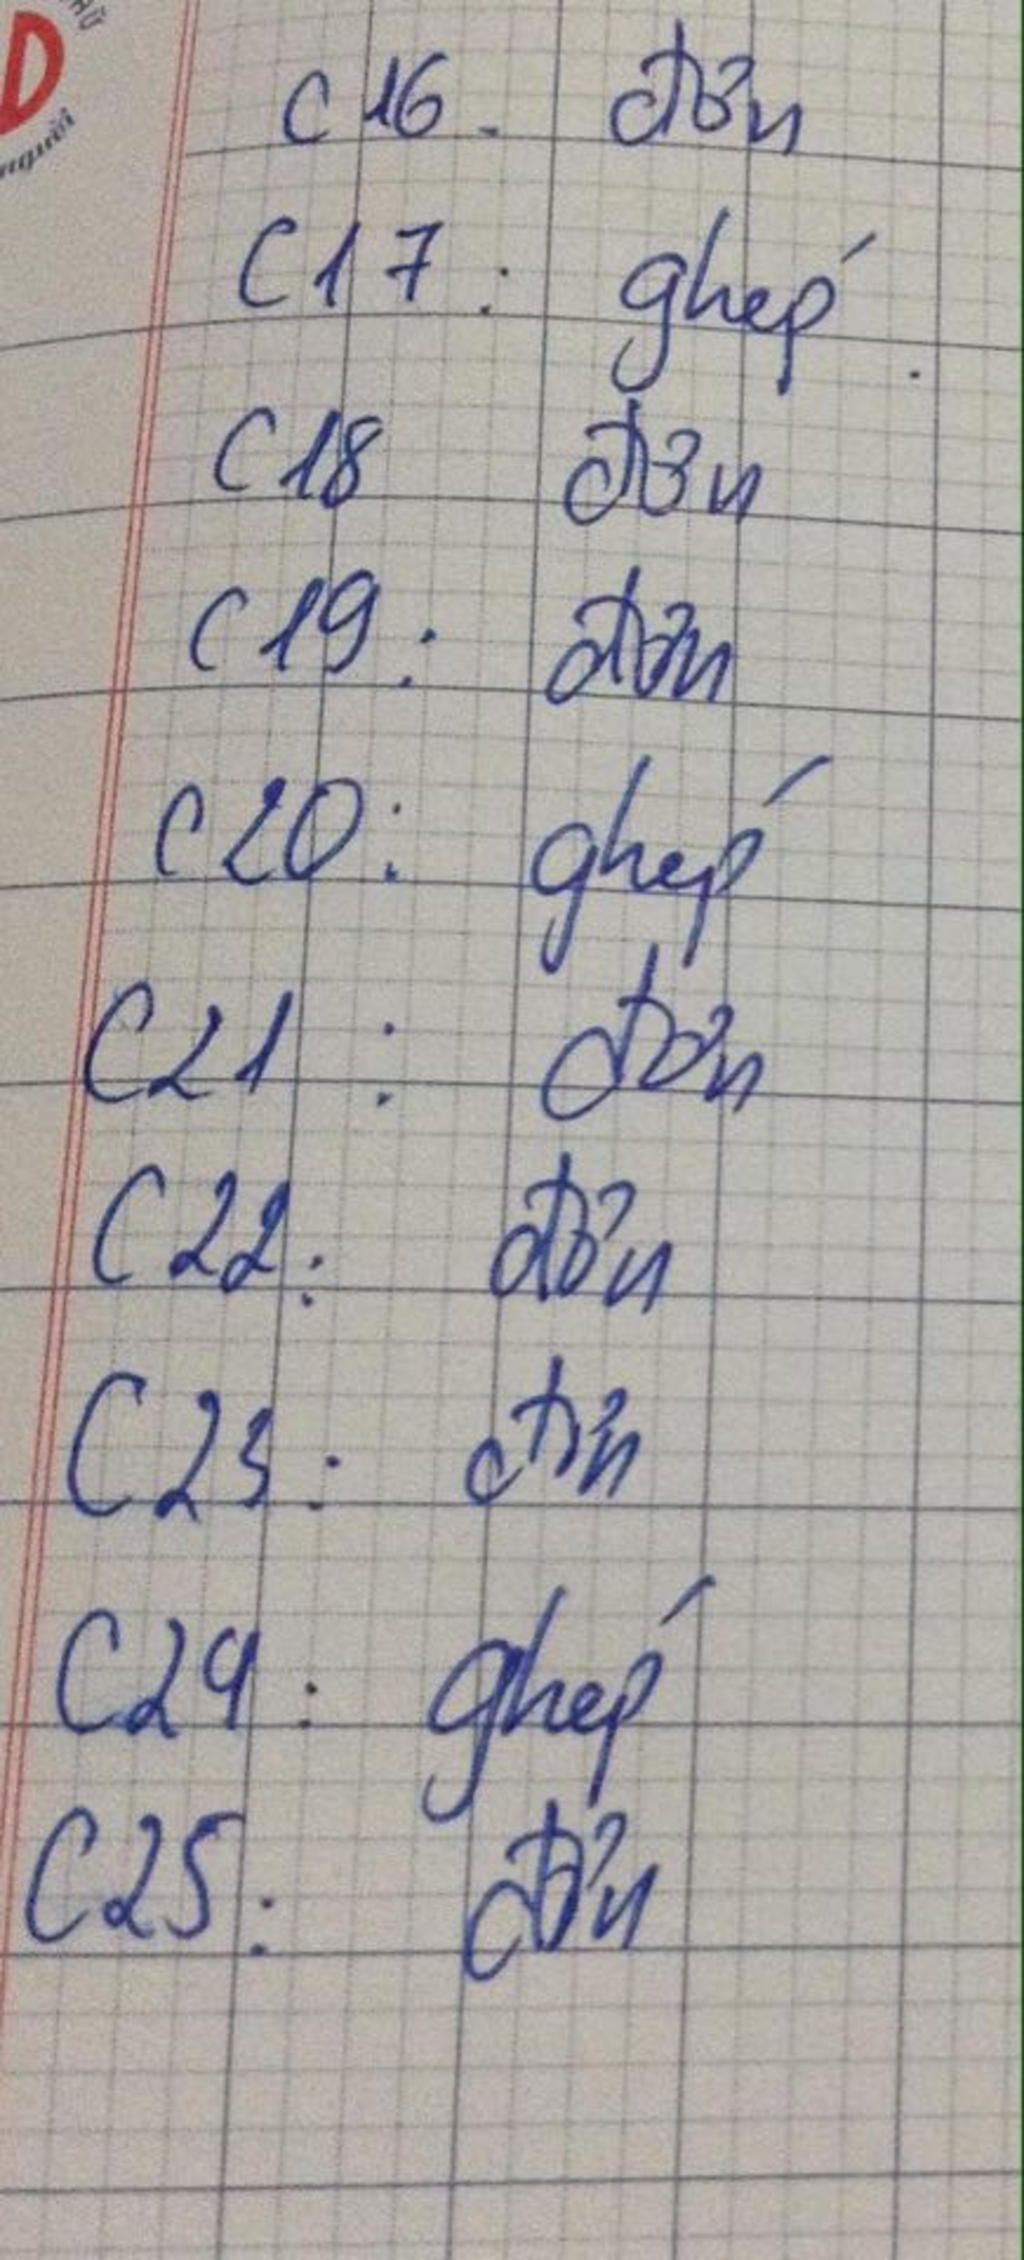 D
người
C16. đơn
C17: ghép.
C18 đơn
C19: đơn
C20: ghép
C21: đơn
C22: đơn
C23: đơn
C24: ghép
C25: đơn